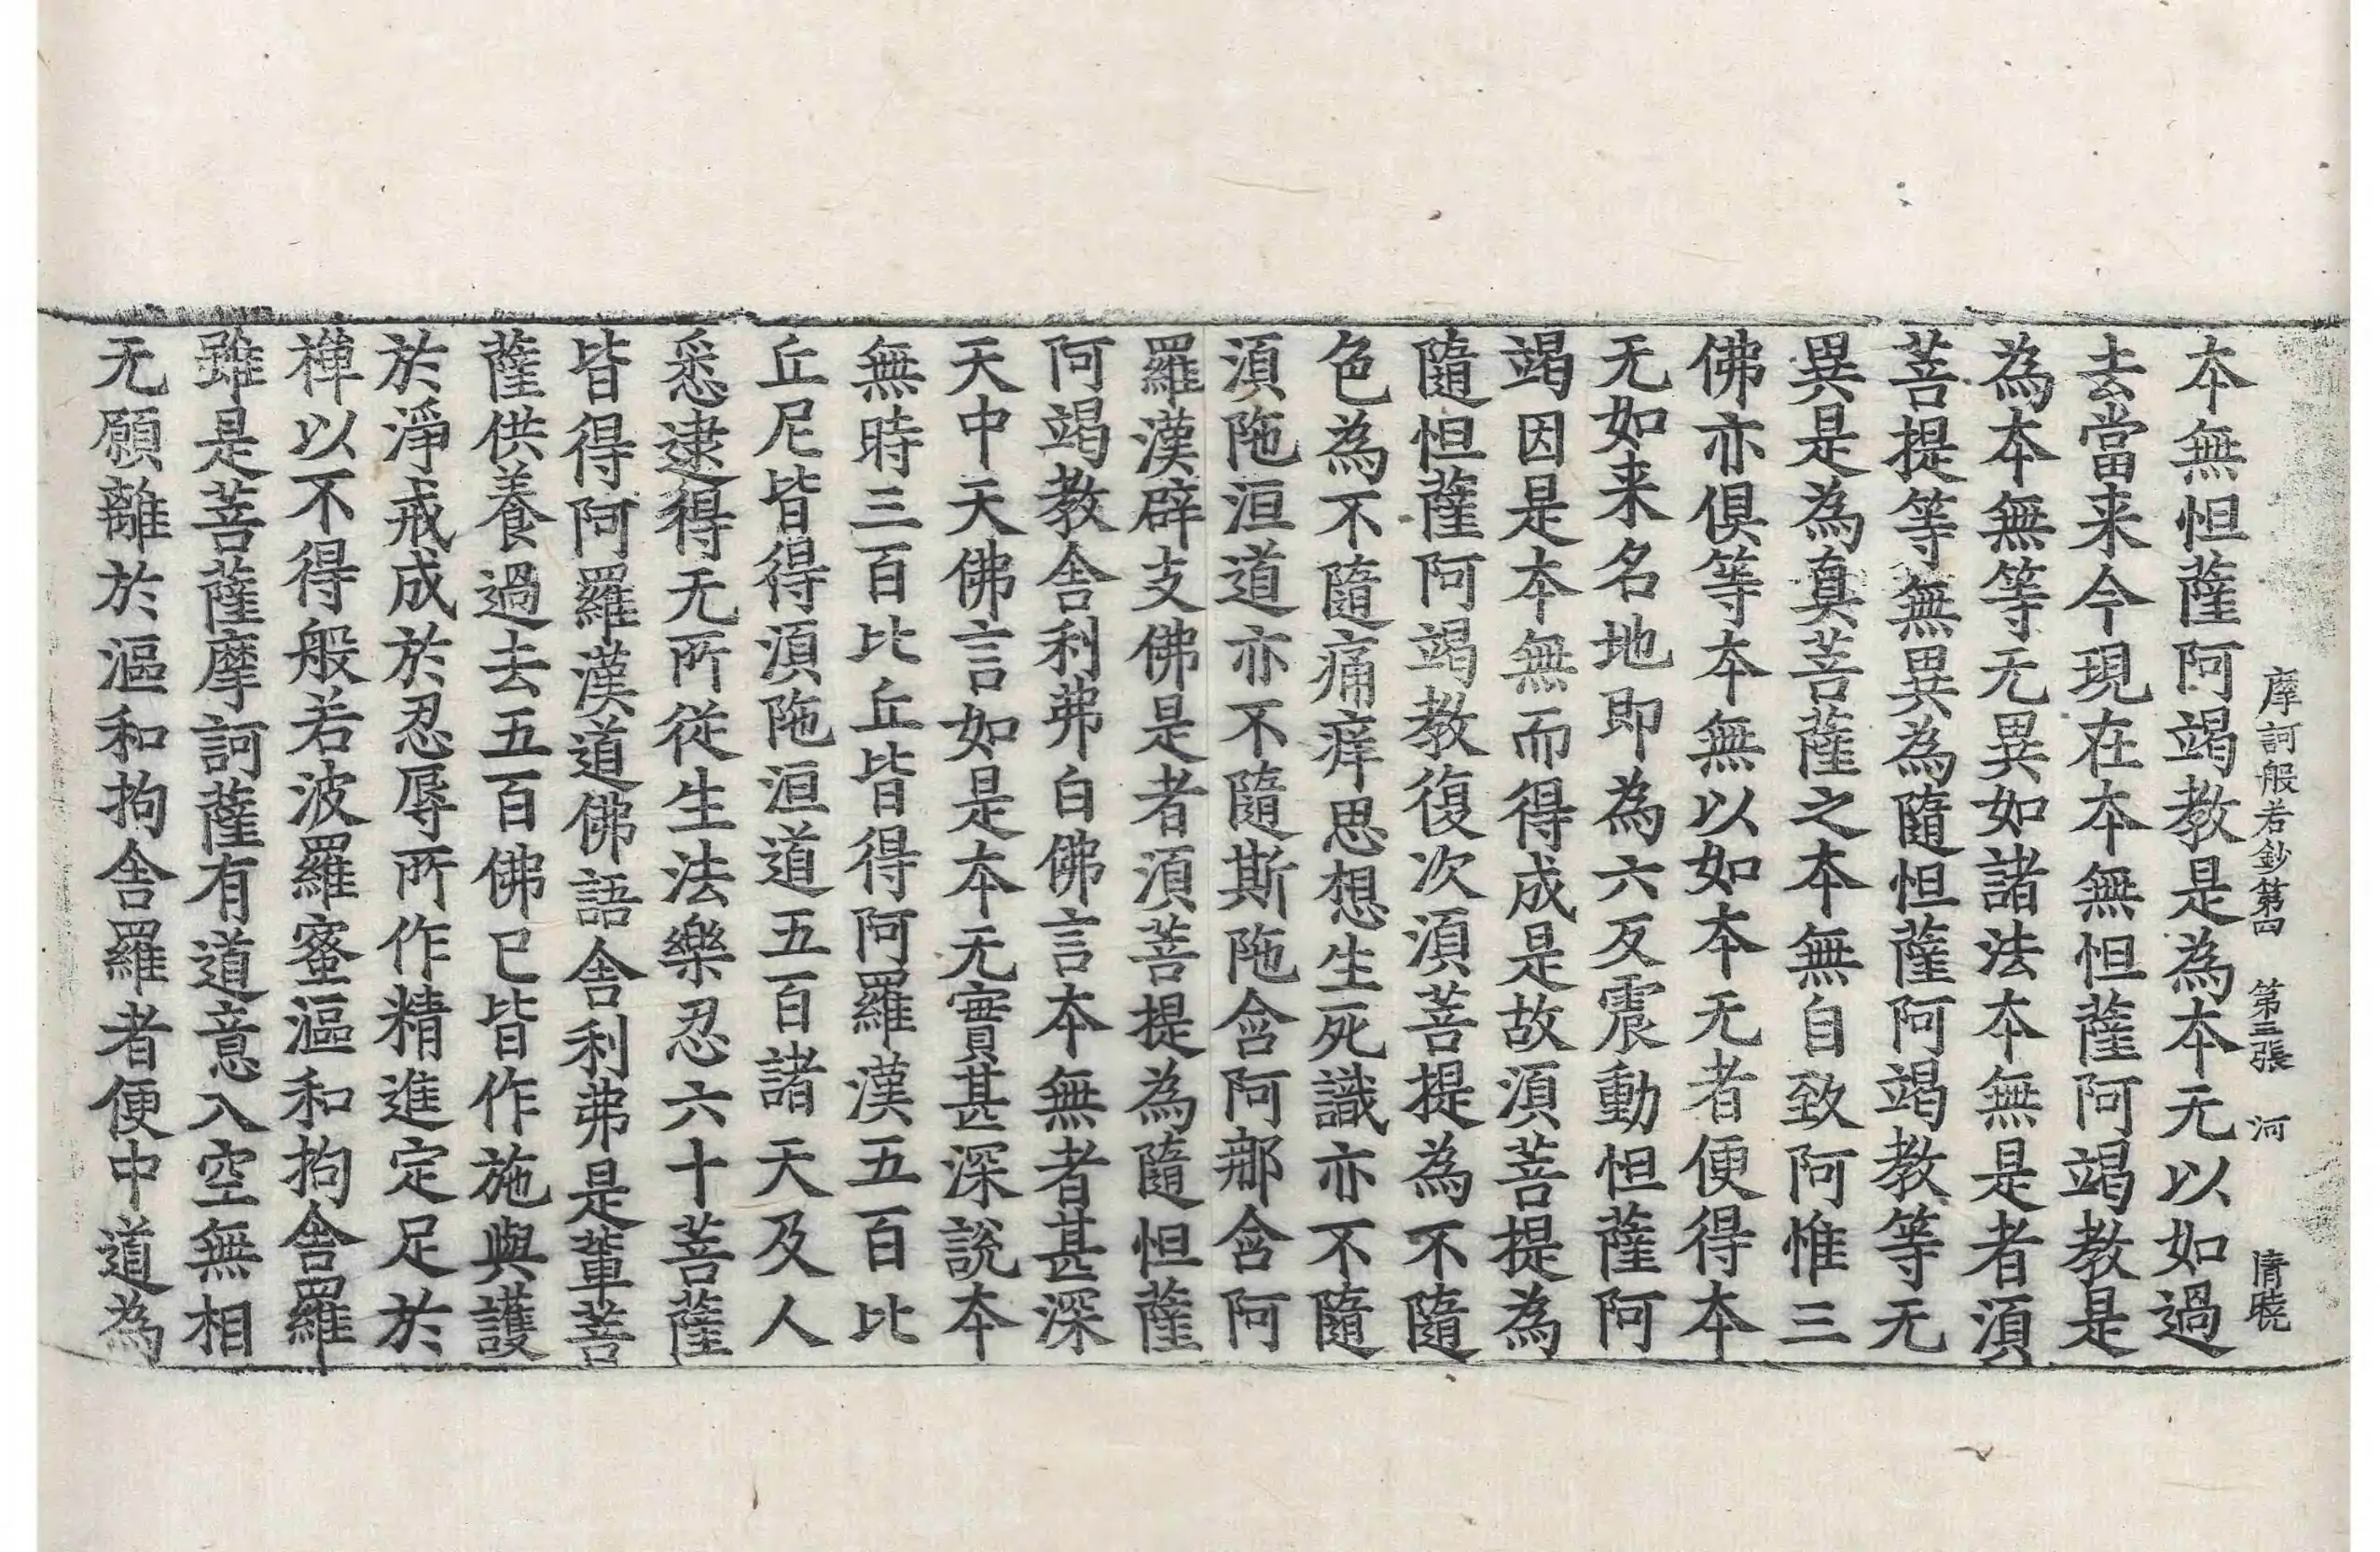 摩訶般若鈔第四　第三張　河　清曉
本無怛薩阿竭教是為本无以如過
去當来今現在本無怛薩阿竭教是
為本無等无異如諸法本無是者湏
菩提等無異為隨怛薩阿竭教等无
異是為真菩薩之本無自致阿惟三
佛亦俱等本無以如本无者便得本
无如来名地即為六反震動怛薩阿
竭因是本無而得成是故湏菩提為
隨怛薩阿竭教復次湏菩提為不隨
色為不隨痛痒思想生死識亦不隨
湏陁洹道亦不隨斯陁含阿那含阿
羅漢辟支佛是者湏菩提為隨怛薩
阿竭教舍利弗白佛言本無者甚深
天中天佛言如是本无實甚深說本
無時三百比丘皆得阿羅漢五百比
丘尼皆得湏陁洹道五百諸天及人
悉逮得无所從生法樂忍六十菩薩
皆得阿羅漢道佛語舍利弗是輩菩
薩供養過去五百佛已皆作施與護
於淨戒成於忍辱所作精進定足於
禅以不得般若波羅蜜漚和拘舍羅
雖是菩薩摩訶薩有道意入空無相
无願離於漚和拘舍羅者便中道為